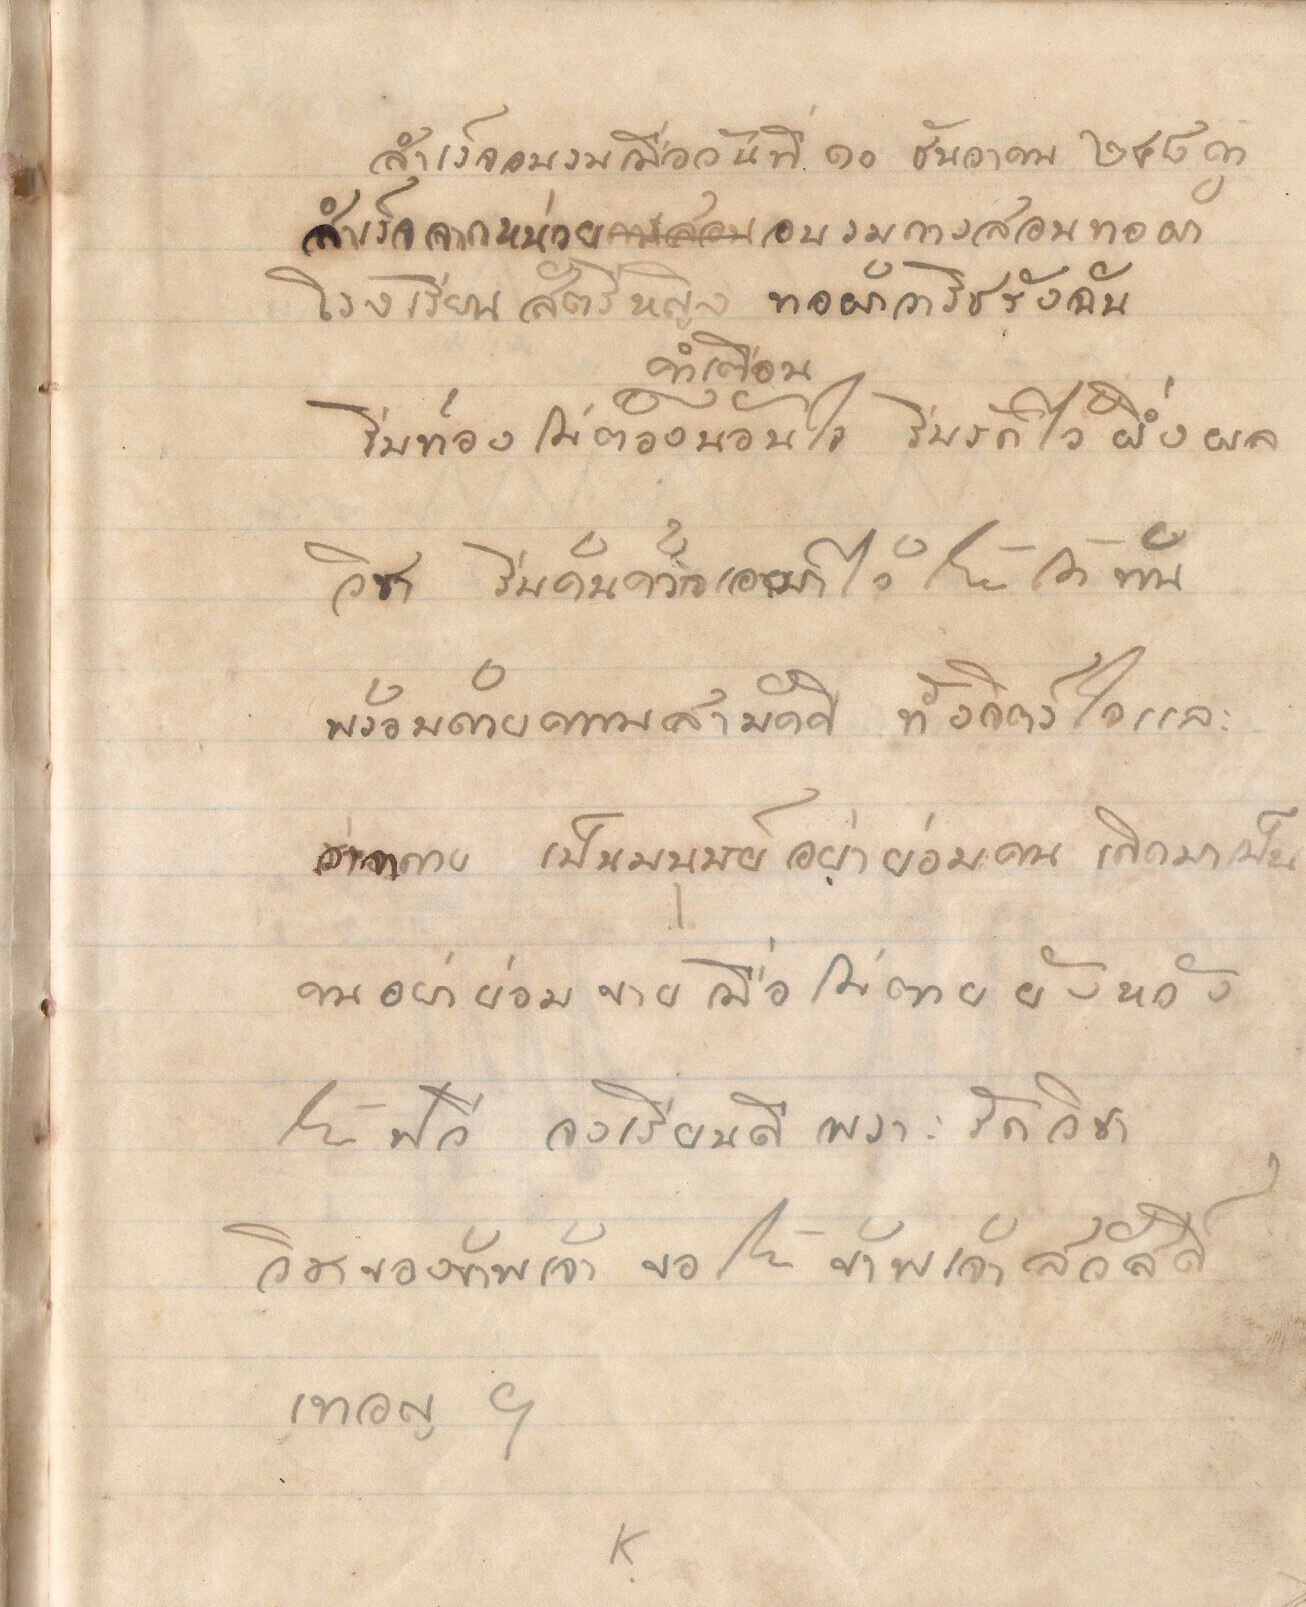 สำเร็จอบรมเมื่อวันที่ ๑๐ ธันวาคม ๒๔๘๓
สำเร็จจากหน่วยการสอนอบรมการสอนทอผ้า
โรงเรียนสัตรีหญิง ทอผ้าวาริชรังฉัน
คำเตือน
ริ่มท่อง ไม่ต้องนอนใจ ริ่มรักไว้ ผึ่งผล
วิชา ริ่มค้นคว้าเอามาไว้ ให้ได้ทัน
พร้อมด้วยความสามัคคี ทั้งจิตร์ใจและ
ร่างกาย เป็นมนุษย์อย่าย่อมคน เกิดมาเป็น
คนอย่าย่อมขาย เมื่อไม่ตายยังหวัง
ให้ จงเรียนดี เพราะรักวิชา
วิชาของข้าพเจ้า ขอให้ข้าพเจ้าสวัสดิ์
เทอญ ฯ
K